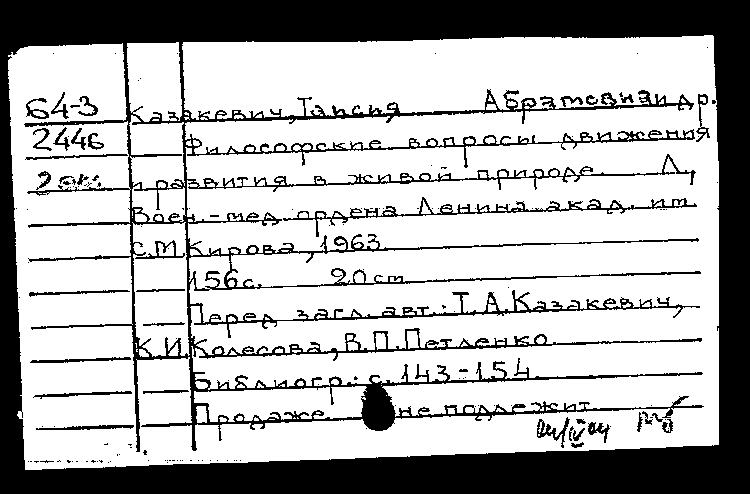 64-3 Казакевич, Таисия Абрамовна и др.
2446 Философские вопросы движения
2 экз. и развития в живой природе. Л.,
Воен.-мед. ордена Ленина акад. им.
С.М. Кирова, 1963.
156с. 20см.
Перед загл. авт.: Т.А. Казакевич,
К.И. Колесова, В.П. Петленко.
Библиогр.: с. 143-154.
Продаже не подлежит.